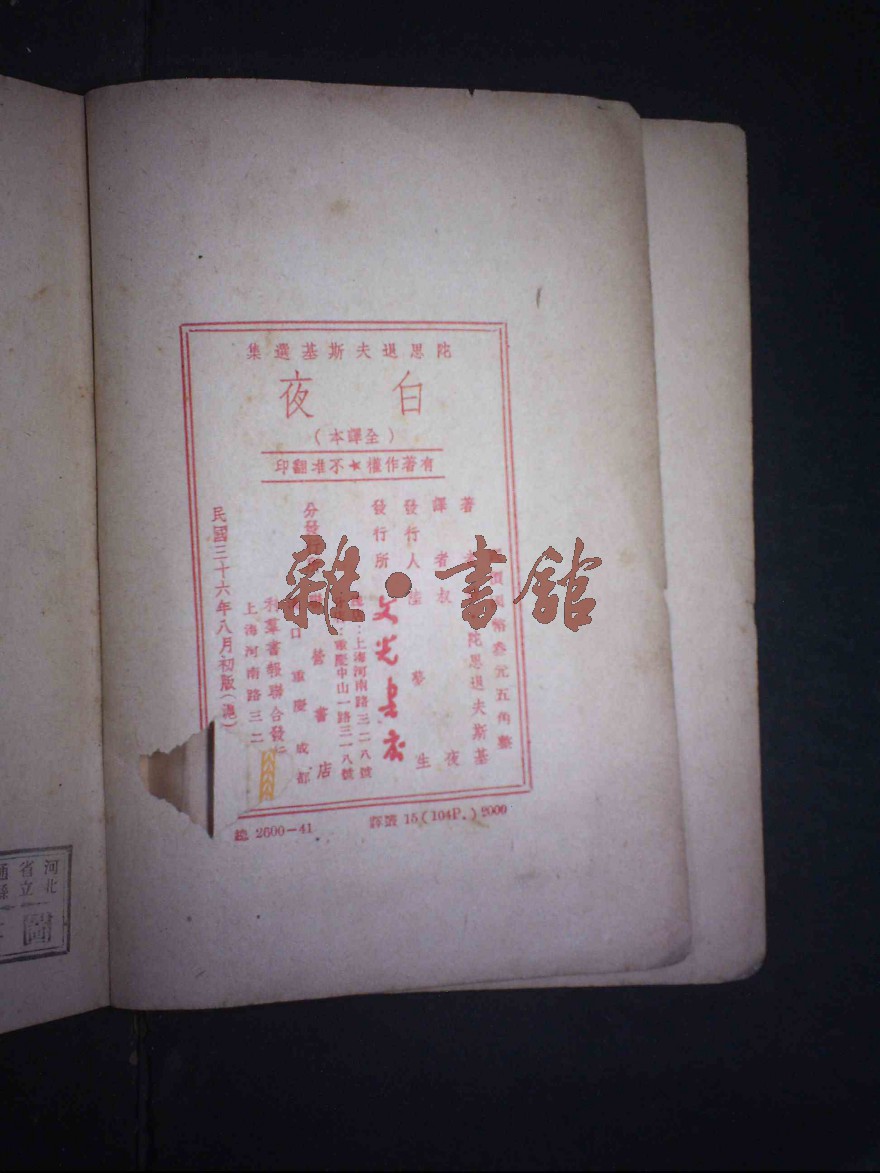 陀思退夫斯基選集
白夜
(全譯本)
有著作權★不准翻印
元五角整
著者 陀思退夫斯基
譯者 叔夜
發行人 陸夢生
發行所 文光書店
上海河南路三二八號
重慶中山一路三一八號
分發行所 聯營書店
重慶 成都
利羣書報聯合發行
上海河南路三二
民國三十六年八月初版(滬)
總 2600-41 譯選 15(104P.)2000
雜·書館
河北
省立
圖